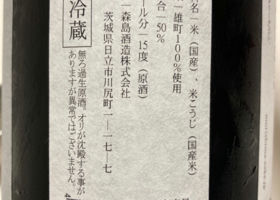 名－米（国産）、米こうじ（国産米）
一雄町100％使用
合－50％
ル分－15度（原酒）
森島酒造株式会社
茨城県日立市川尻町一－一七－七
冷蔵
無ろ過生原酒。オリが沈殿する事が
ありますが異常ではございません。